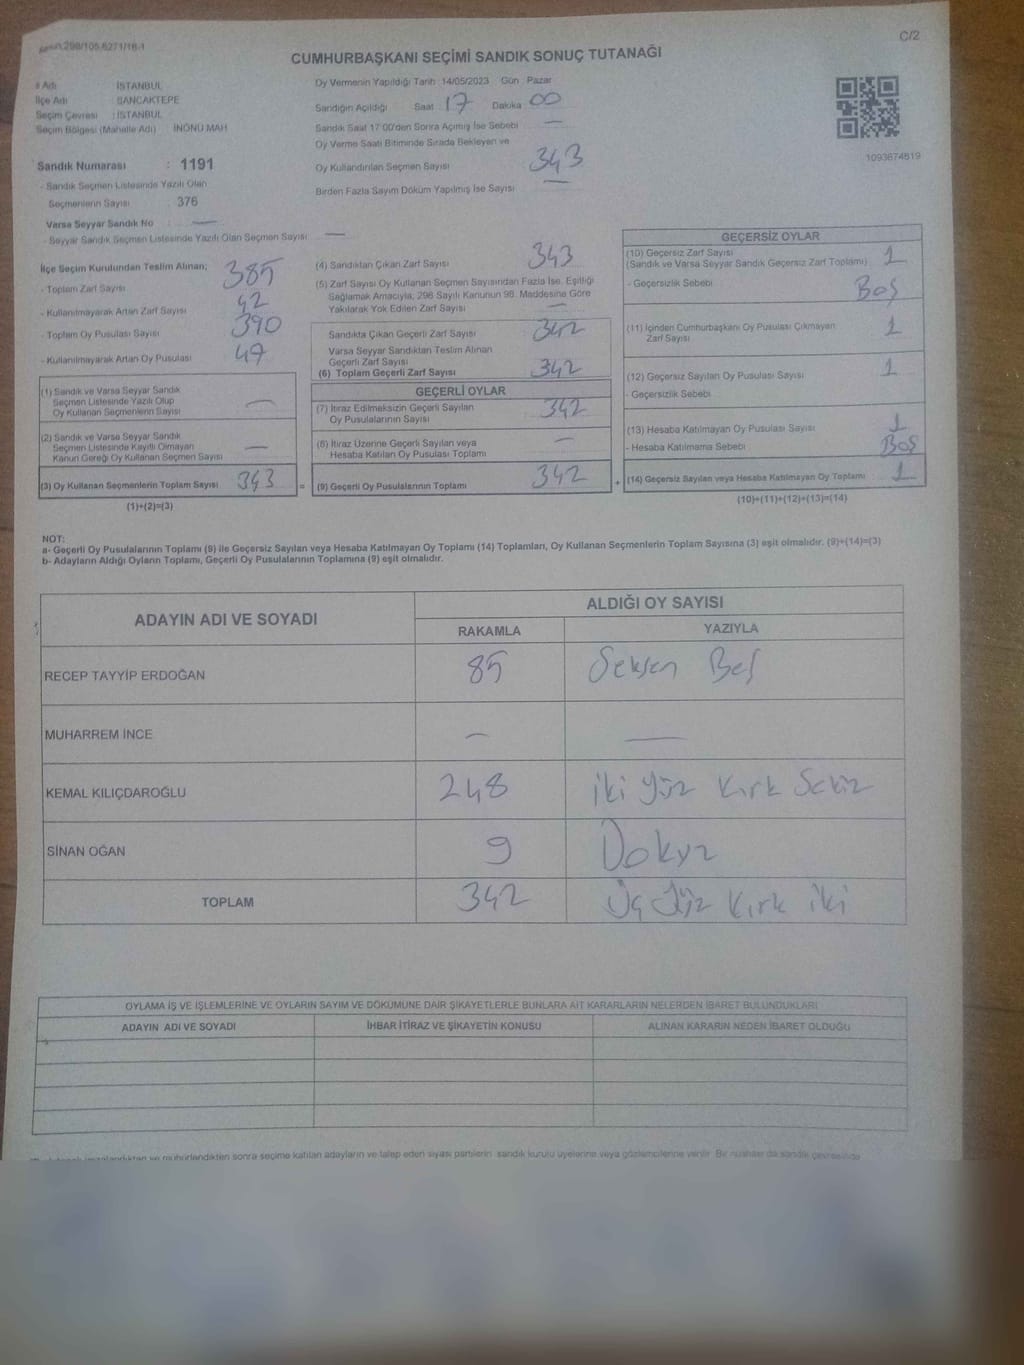 298/105.6271/16-1
C/2
CUMHURBAŞKANI SEÇİMİ SANDIK SONUÇ TUTANAĞI
İl Adı İSTANBUL
İlçe Adı SANCAKTEPE
Seçim Çevresi : İSTANBUL
Seçim Bölgesi (Mahalle Adı) İNÖNÜ MAH
Sandık Numarası : 1191
- Sandık Seçmen Listesinde Yazılı Olan
Seçmenlerin Sayısı 376
Varsa Seyyar Sandık No —
- Seyyar Sandık Seçmen Listesinde Yazılı Olan Seçmen Sayısı —
Oy Vermenin Yapıldığı Tarih 14/05/2023 Gün Pazar
Sandığın Açıldığı Saat 17 Dakika 00
Sandık Saat 17:00'den Sonra Açılmış İse Sebebi —
Oy Verme Saati Bitiminde Sırada Bekleyen ve
Oy Kullandırılan Seçmen Sayısı 343
Birden Fazla Sayım Döküm Yapılmış İse Sayısı —
1093874819
İlçe Seçim Kurulundan Teslim Alınan;
- Toplam Zarf Sayısı 385
- Kullanılmayarak Artan Zarf Sayısı 42
- Toplam Oy Pusulası Sayısı 390
- Kullanılmayarak Artan Oy Pusulası 47
(1) Sandık ve Varsa Seyyar Sandık
Seçmen Listesinde Yazılı Olup
Oy Kullanan Seçmenlerin Sayısı —
(2) Sandık ve Varsa Seyyar Sandık
Seçmen Listesinde Kayıtlı Olmayan
Kanun Gereği Oy Kullanan Seçmen Sayısı —
(3) Oy Kullanan Seçmenlerin Toplam Sayısı 343 =
(1)+(2)=(3)
(4) Sandıktan Çıkan Zarf Sayısı 343
(5) Zarf Sayısı Oy Kullanan Seçmen Sayısından Fazla İse, Eşitliği
Sağlamak Amacıyla, 298 Sayılı Kanunun 98. Maddesine Göre
Yakılarak Yok Edilen Zarf Sayısı —
Sandıkta Çıkan Geçerli Zarf Sayısı 342
Varsa Seyyar Sandıktan Teslim Alınan
Geçerli Zarf Sayısı
(6) Toplam Geçerli Zarf Sayısı 342
GEÇERLİ OYLAR
(7) İtiraz Edilmeksizin Geçerli Sayılan
Oy Pusulalarının Sayısı 342
(8) İtiraz Üzerine Geçerli Sayılan veya
Hesaba Katılan Oy Pusulası Toplamı —
(9) Geçerli Oy Pusulalarının Toplamı 342 +
GEÇERSİZ OYLAR
(10) Geçersiz Zarf Sayısı
(Sandık ve Varsa Seyyar Sandık Geçersiz Zarf Toplamı) 1
- Geçersizlik Sebebi Boş
(11) İçinden Cumhurbaşkanı Oy Pusulası Çıkmayan
Zarf Sayısı 1
(12) Geçersiz Sayılan Oy Pusulası Sayısı 1
- Geçersizlik Sebebi
(13) Hesaba Katılmayan Oy Pusulası Sayısı 1
- Hesaba Katılmama Sebebi Boş
(14) Geçersiz Sayılan veya Hesaba Katılmayan Oy Toplamı 1
(10)+(11)+(12)+(13)=(14)
NOT:
a- Geçerli Oy Pusulalarının Toplamı (9) ile Geçersiz Sayılan veya Hesaba Katılmayan Oy Toplamı (14) Toplamları, Oy Kullanan Seçmenlerin Toplam Sayısına (3) eşit olmalıdır. (9)+(14)=(3)
b- Adayların Aldığı Oyların Toplamı, Geçerli Oy Pusulalarının Toplamına (9) eşit olmalıdır.
ADAYIN ADI VE SOYADI
ALDIĞI OY SAYISI
RAKAMLA YAZIYLA
RECEP TAYYİP ERDOĞAN 85 Seksen Beş
MUHARREM İNCE — —
KEMAL KILIÇDAROĞLU 248 iki yüz Kırk Sekiz
SİNAN OĞAN 9 Dokuz
TOPLAM 342 Üç Yüz Kırk iki
OYLAMA İŞ VE İŞLEMLERİNE VE OYLARIN SAYIM VE DÖKÜMÜNE DAİR ŞİKAYETLERLE BUNLARA AİT KARARLARIN NELERDEN İBARET BULUNDUKLARI
ADAYIN ADI VE SOYADI İHBAR İTİRAZ VE ŞİKAYETİN KONUSU ALINAN KARARIN NEDEN İBARET OLDUĞU
imzalandıktan ve mühürlendikten sonra seçime katılan adayların ve talep eden siyasi partilerin sandık kurulu üyelerine veya gözlemcilerine verilir. Bir nüshası da sandık çevresinde